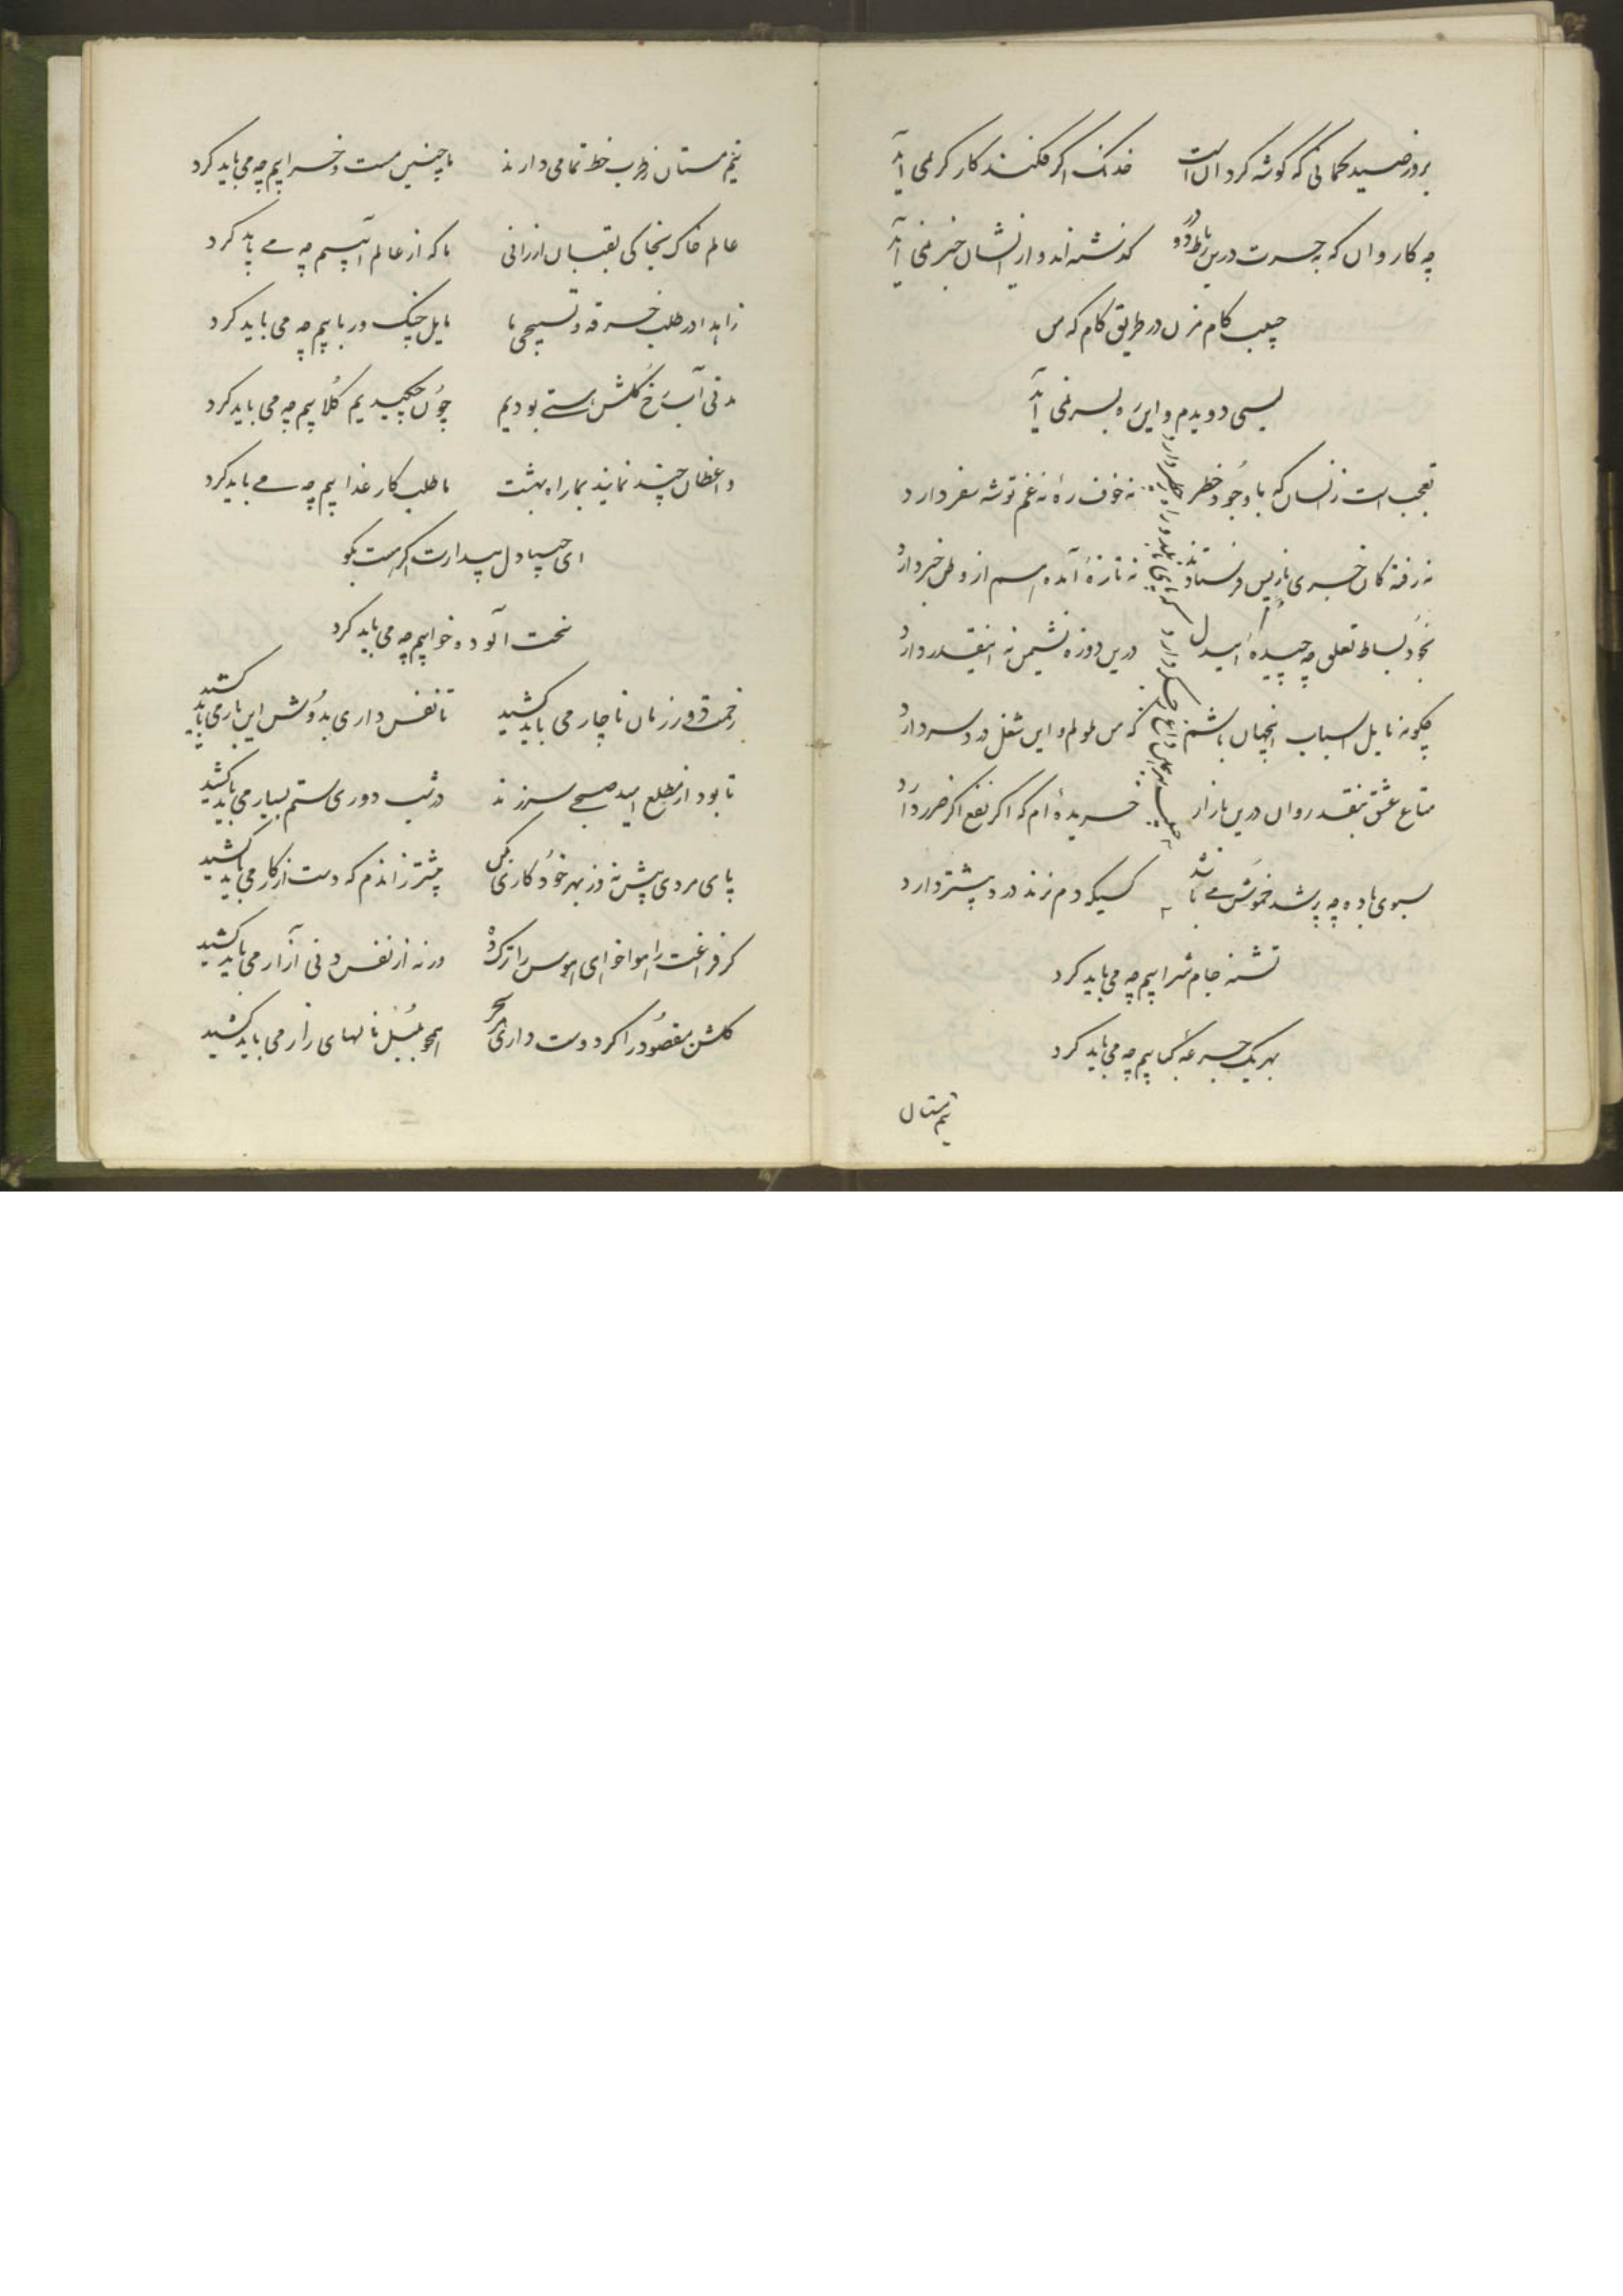 بروز صید کمانی که گوشه کردان است خدنک اگر فکند کارگر نمی آید
چه کاروان که بحسرت درین رباط دو در گذشته اند و از ایشان خبر نمی آید
حبیب کام مزن در طریق کام که من
بسی دویدم و این ره بسر نمی آید
تعجب است ز انسان که با وجود خطر نه خوف ره نه غم توشه سفر دارد
نه رفته کان خبری باز پس فرستادند نه تازه آمده هم از وطن خبر دارد
بخود بساط تعلق چه چیده ایدل درین دوروزه نشیمن نه اینقدر دارد
چکونه مایل اسباب اینجهان باشم که من ملولم و این شغل درد سر دارد
متاع عشق بنقد روان درین بازار خریده ام که اگر نفع اگر ضرر دارد
سبوی باده چه پر شد خموش می باشد کسیکه دم نزند درد بیشتر دارد
حبیب داغ جگر دارد
تشنه جام شرابیم چه می باید کرد
بهر یک جرعه کبابیم چه می باید کرد
نیم مستان
نیم مستان ز طرب خط تمامی دارند ما چنین مست و خرابیم چه می باید کرد
عالم خاک بخاکی لقبان ارزانی ما که از عالم آبیم چه می باید کرد
زاهدا در طلب خرقه و تسبیحی ما مایل چنک و ربابیم چه می باید کرد
مدتی آب رخ کلشن هستی بودیم چون چکیدیم کلابیم چه می باید کرد
واعظان چند نمایند بما راه بهشت ما طلب کار عذابیم چه می باید کرد
ای حبیبا دل بیدارت اگر هست بکو
سخت آلوده خوابیم چه می باید کرد
زحمت دور زمان ناچار می باید کشید تا نفس داری بدوش این بار می باید کشید
تا بود از مطلع امید صبحی سرزند در شب دوری ستم بسیار می باید کشید
پای مردی پیش نه وز بهر خود کاری بکن پیشتر زاندم که دست از کار می باید کشید
کر فراغت را هوا خواهی هوس را ترک ده ورنه از نفس دنی آزار می باید کشید
کلشن مقصود را کر دوست داری هر سحر همچو بلبل نالهای زار می باید کشید